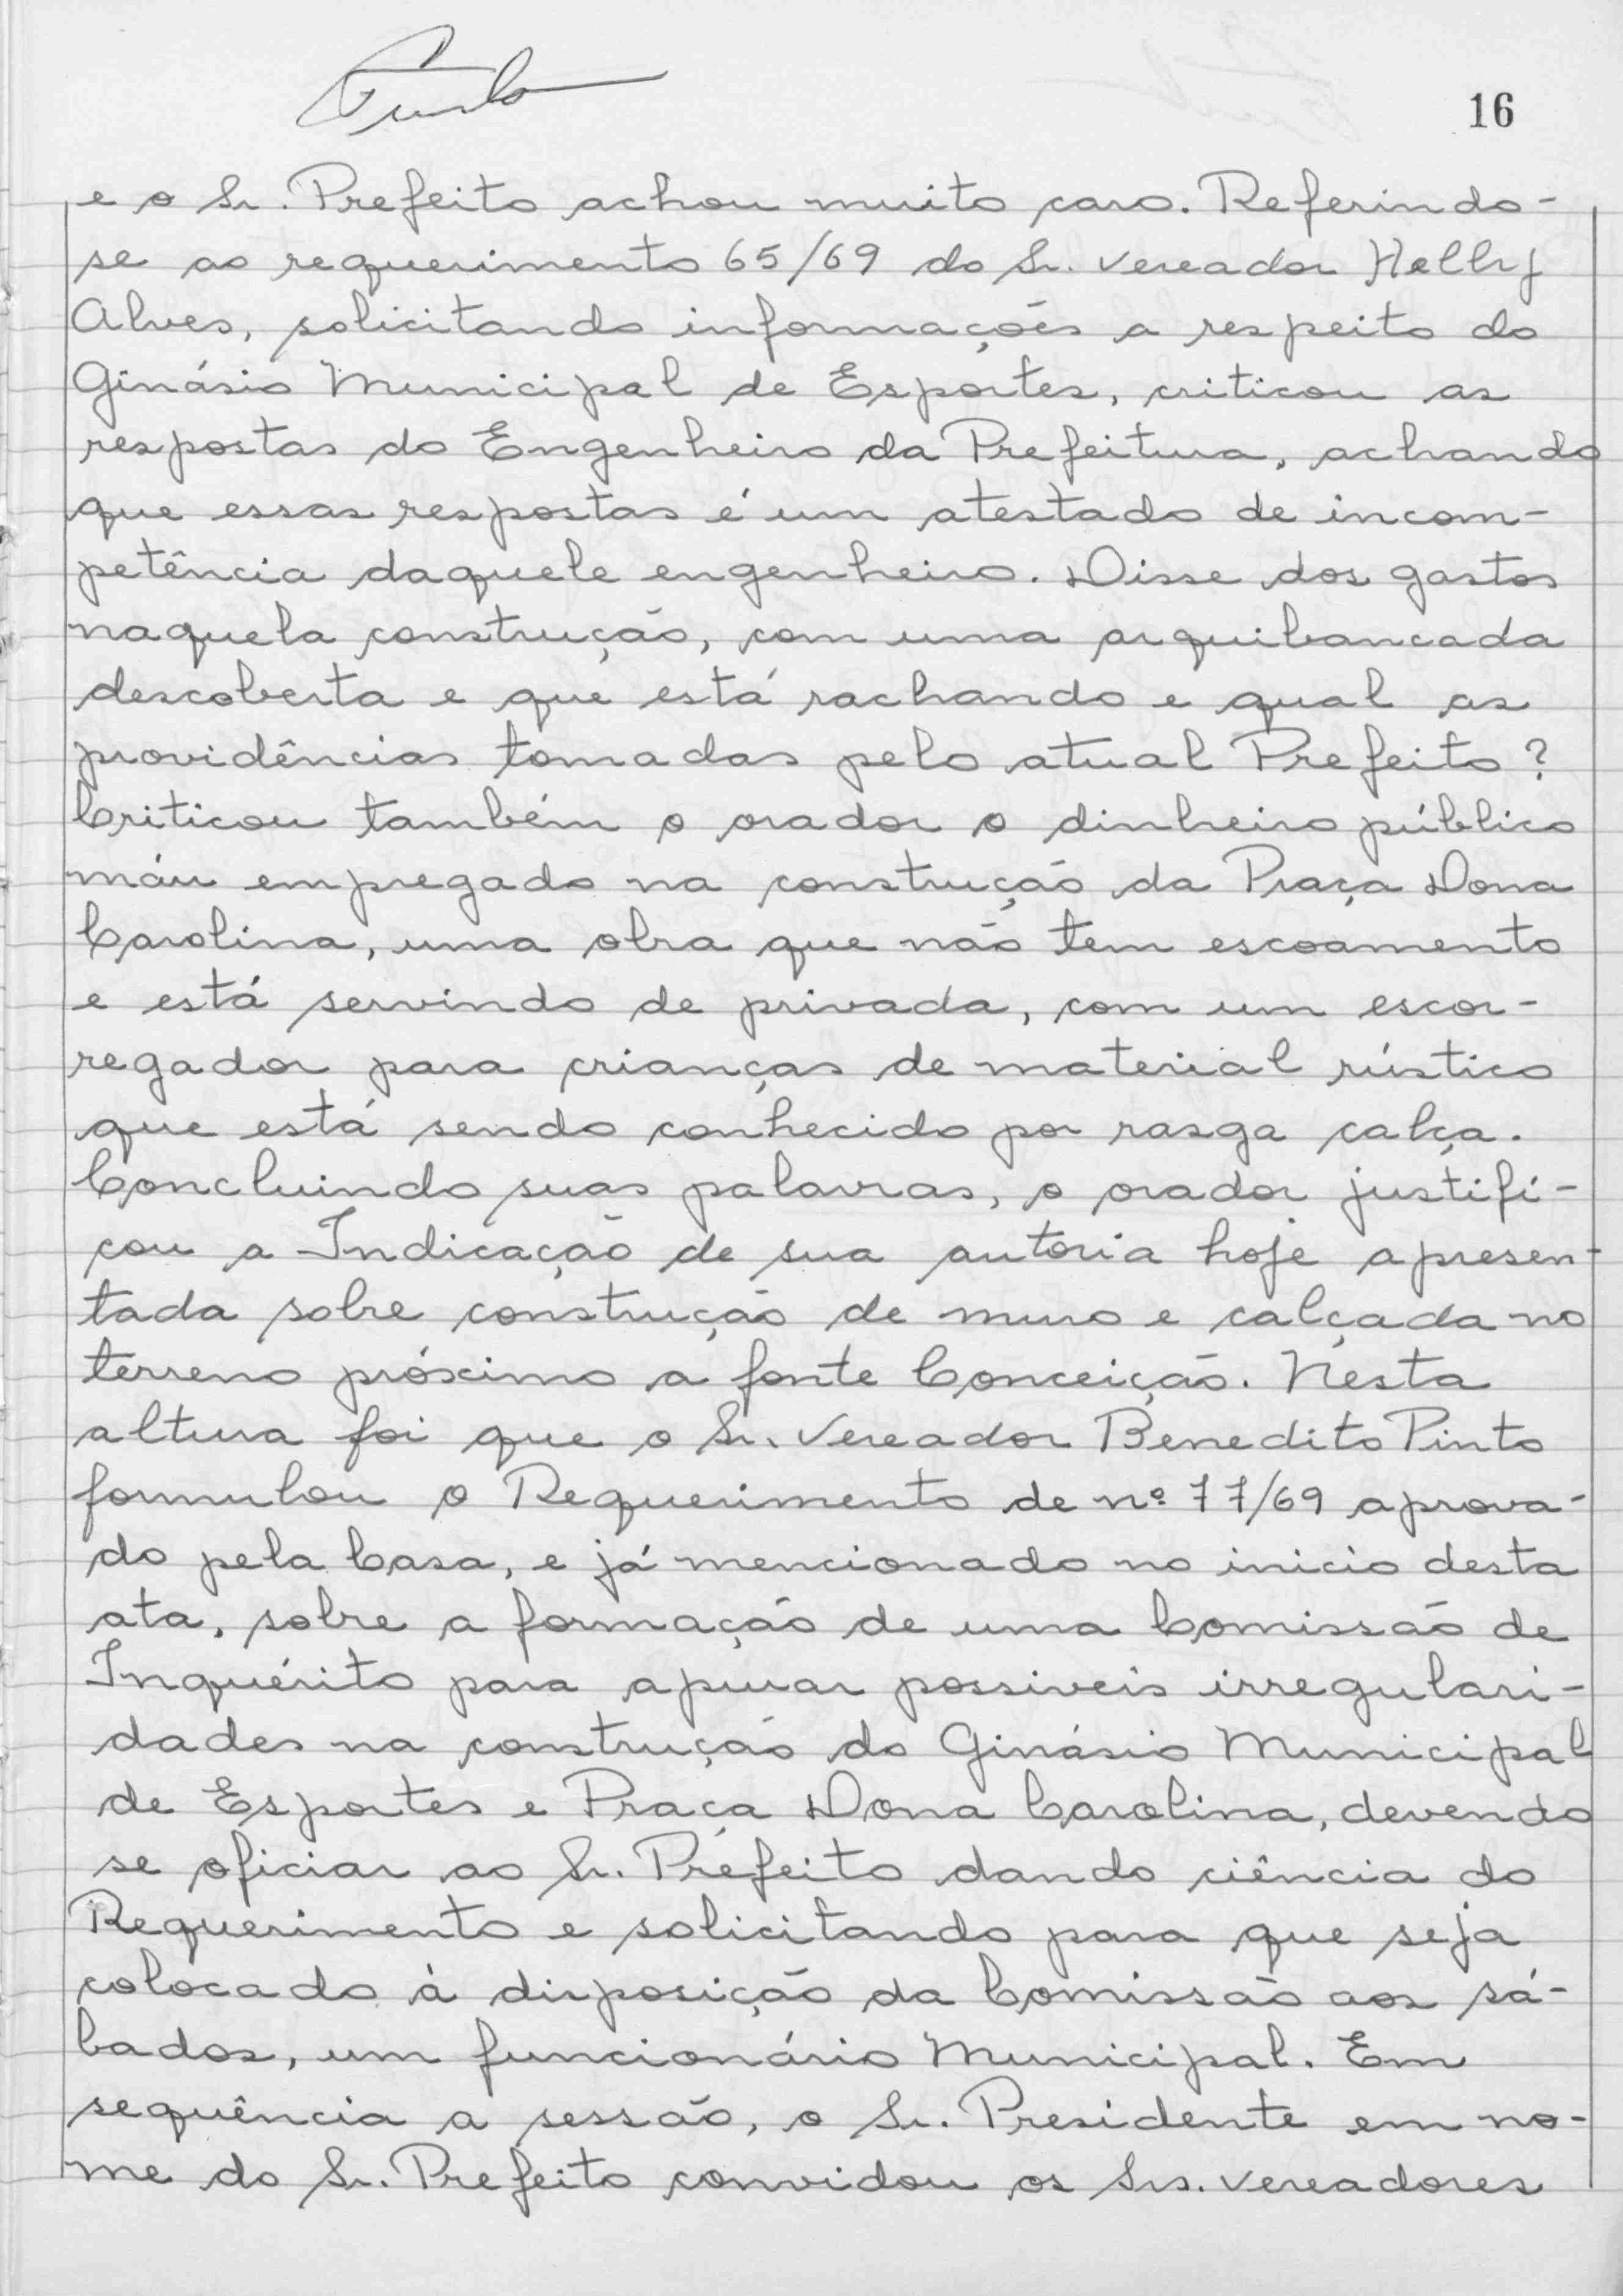 16
e o Sr. Prefeito achou muito caro. Referindo-
se ao requerimento 65/69 do Sr. Vereador Helly
Alves, solicitando informações a respeito do
Ginásio Municipal de Esportes, criticou as
respostas do Engenheiro da Prefeitura, achando
que essas respostas é um atestado de incom-
petência daquele engenheiro. Disse dos gastos
naquela construção, com uma arquibancada
descoberta e que está rachando e qual as
providências tomadas pelo atual Prefeito?
Criticou também o orador o dinheiro público
máu empregado na construção da Praça Dona
Carolina, uma obra que não tem escoamento
e está servindo de privada, com um escor-
regador para crianças de material rústico
que está sendo conhecido por rasga calça.
Concluindo suas palavras, o orador justifi-
cou a Indicação de sua autoria hoje apresen-
tada sobre construção de muro e calçada no
terreno próximo a fonte Conceição. Nesta
altura foi que o Sr. Vereador Benedito Pinto
formulou o Requerimento de nº 77/69 aprova-
do pela Casa, e já mencionado no inicio desta
ata, sobre a formação de uma Comissão de
Inquérito para apurar possiveis irregulari-
dades na construção do Ginásio Municipal
de Esportes e Praça Dona Carolina, devendo
se oficiar ao Sr. Prefeito dando ciência do
Requerimento e solicitando para que seja
colocado à disposição da Comissão aos sá-
bados, um funcionário Municipal. Em
sequência a sessão, o Sr. Presidente em no-
me do Sr. Prefeito convidou os Srs. Vereadores